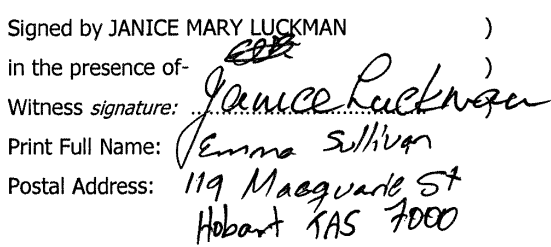 Signed by JANICE MARY LUCKMAN )
in the presence of- )
Witness signature: Janice Luckman )
Print Full Name: Emma Sullivan
Postal Address: 119 Macquarie St
Hobart TAS 7000